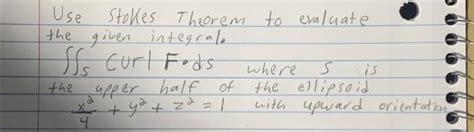 Use Stokes Theorem to evaluate
the given integral.
∬ₛ Curl F•ds where S is
the upper half of the ellipsoid
x²/4 + y² + z² = 1 with upward orientation